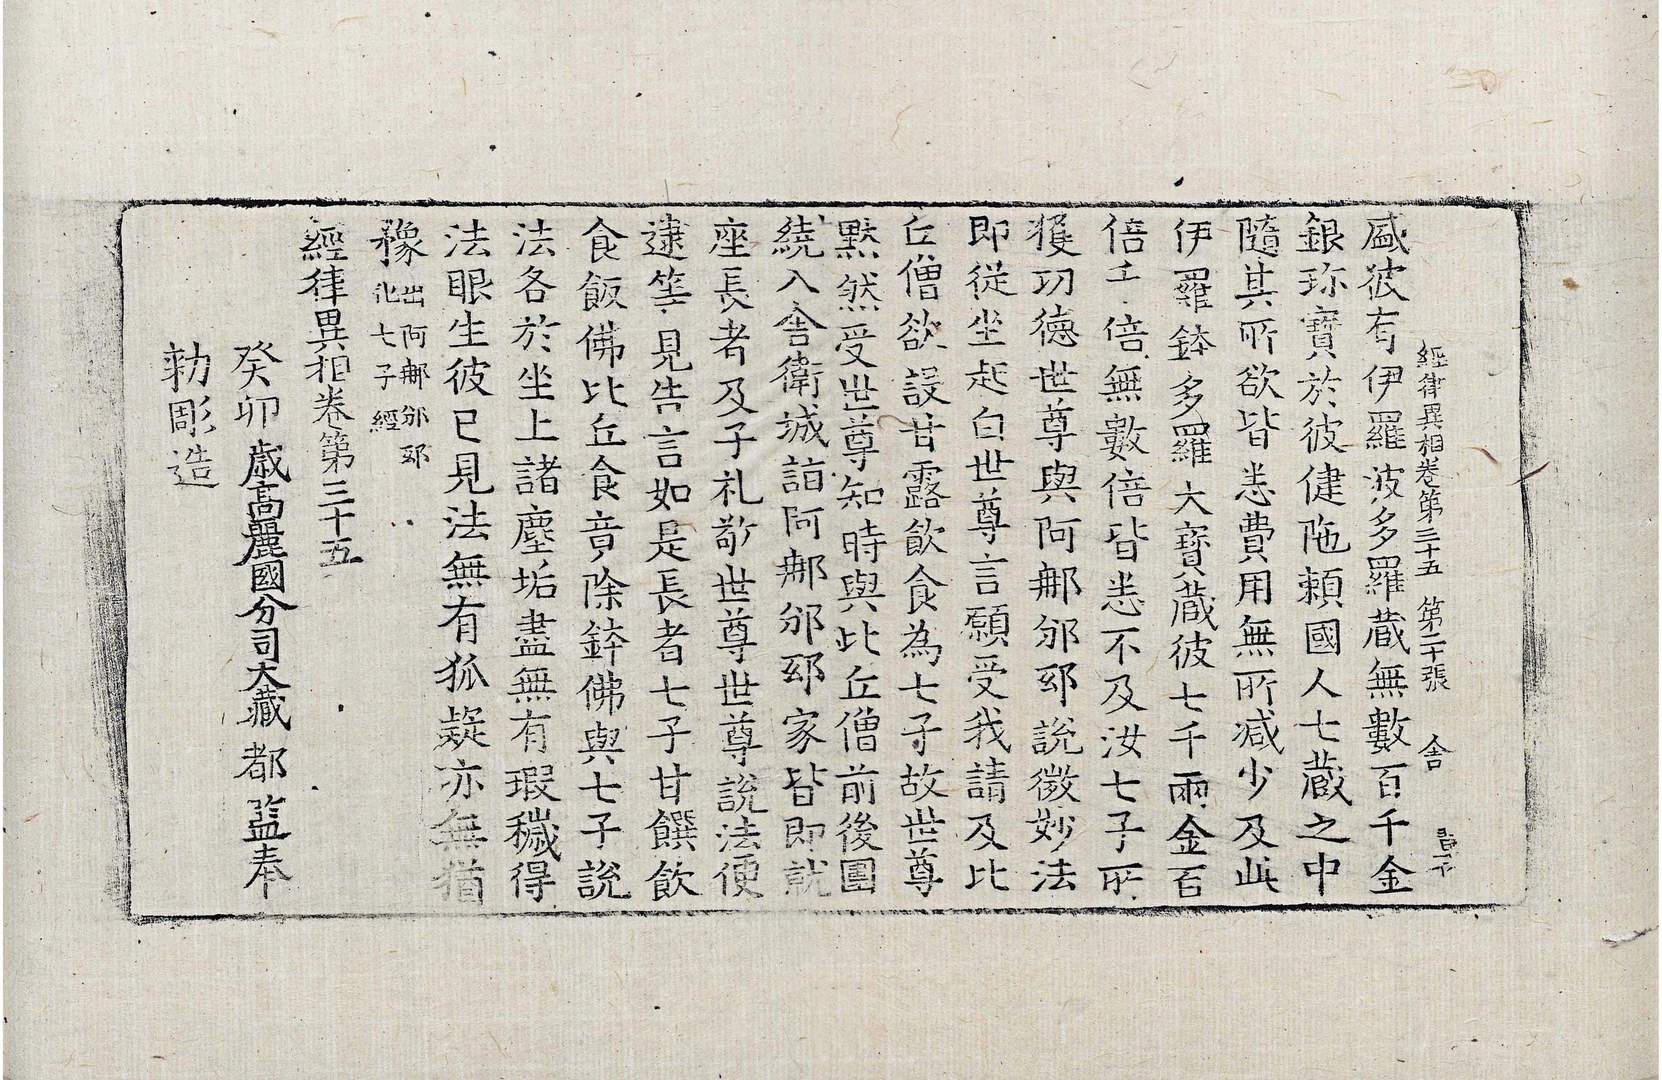 經律異相卷第三十五　第二十張　舍
盛彼有伊羅波多羅蔵無數百千金
銀珎寶於彼健陁頼國人七蔵之中
隨其所欲皆悉費用無所減少及此
伊羅鉢多羅大寶蔵彼七千兩金百
倍千倍無數倍皆悉不及汝七子所
獲功德世尊與阿那邠邸說微妙法
即從坐起白世尊言願受我請及比
丘僧欲設甘露飲食為七子故世尊
黙然受世尊知時與比丘僧前後圍
繞入舍衛城詣阿那邠邸家皆即就
座長者及子礼敬世尊世尊說法便
逮等見告言如是長者七子甘饌飲
食飯佛比丘食竟除鉢佛與七子說
法各於坐上諸塵垢盡無有瑕穢得
法眼生彼已見法無有狐疑亦無猶
豫
出阿那邠邸
化七子經
經律異相卷第三十五
癸卯歳高麗國分司大藏都監奉
勑彫造